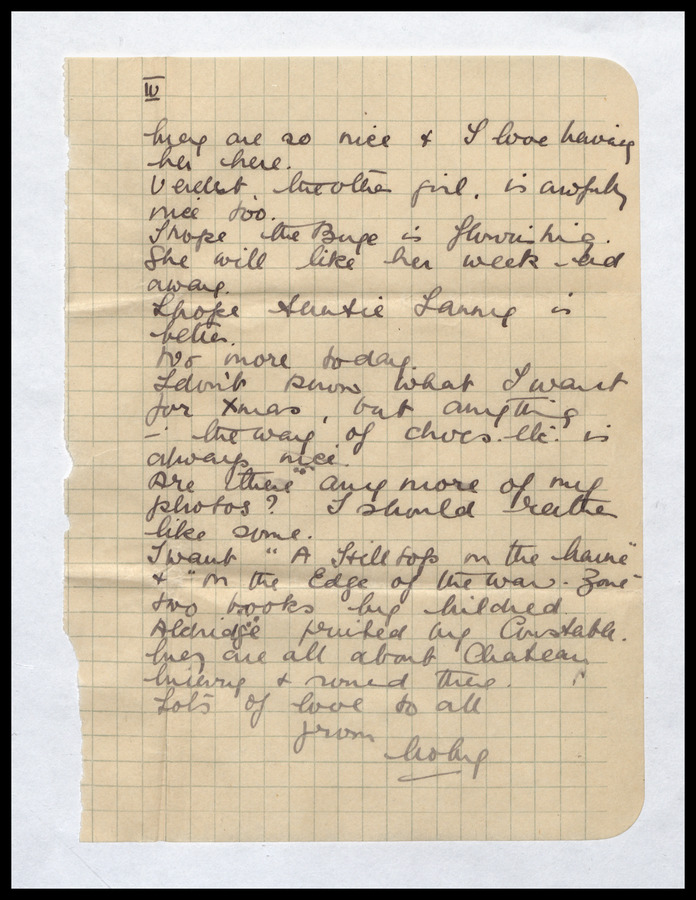 IV
they are so nice & I love having
her here.
the other girl, is awfully
nice too.
I hope the is flourishing.
She will like her week-end
away.
I hope Auntie is
better.
No more today.
I don't know what I want
for Xmas, but anything
in the way of chocs. etc. is
always nice.
Are there any more of my
photos? I should rather
like some.
I want "A Hilltop on the Marne"
& "On the Edge of the War-Zone"
two books by Mildred
Aldridge printed by Constable.
They are all about Chateau
Thierry & round there.
Lots of love to all
from